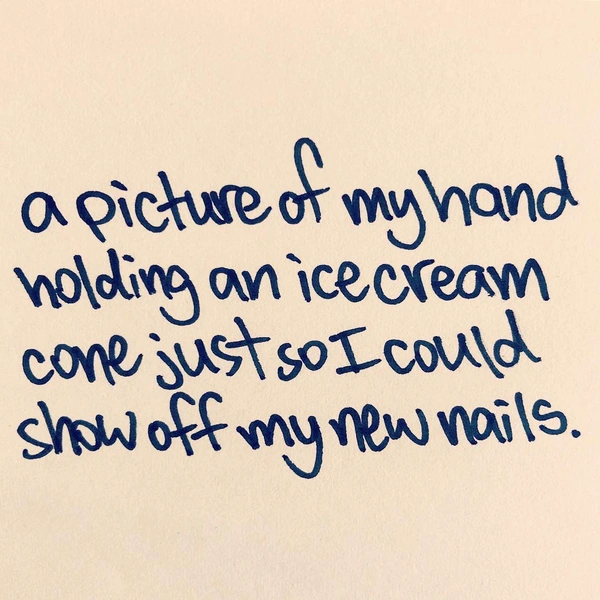 a picture of my hand
holding an ice cream
cone just so I could
show off my new nails.